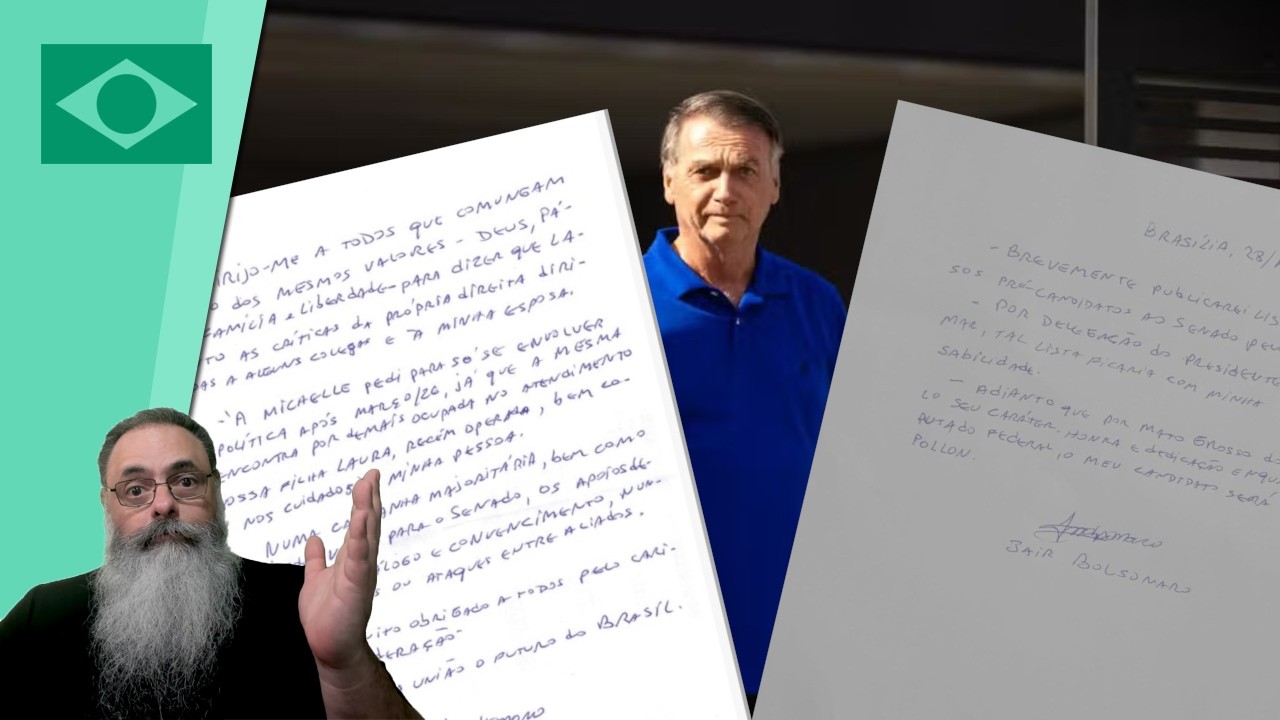 RIJO-ME A TODOS QUE COMUNGAM
O DOS MESMOS VALORES - DEUS, PÁ-
FAMÍLIA E LIBERDADE - PARA DIZER QUE LA-
TO AS CRÍTICAS DA PRÓPRIA DIREITA DIRI-
DAS A ALGUNS COLEGAS E À MINHA ESPOSA.
- À MICHELLE PEDI PARA SÓ SE ENVOLVER
POLÍTICA APÓS MARÇO/26, JÁ QUE A MESMA
ENCONTRA POR DEMAIS OCUPADA NO ATENDIMENTO
OSSA FILHA LAURA, RECÉM OPERADA, BEM CO-
NOS CUIDADOS MINHA PESSOA.
NUMA CAMPANHA MAJORITÁRIA, BEM COMO
PARA O SENADO, OS APOIOS DE-
LOGO E CONVENCIMENTO, NUN-
S OU ATAQUES ENTRE ALIADOS.
ITO OBRIGADO A TODOS PELO CARI-
ERAÇÃO-
UNIÃO O FUTURO DO BRASIL.
BRASÍLIA, 28/
- BREVEMENTE PUBLICAREI LIS
SOS PRÉ-CANDIDATOS AO SENADO PEL
- POR DELEGAÇÃO DO PRESIDENTE
MAR, TAL LISTA FICARIA COM MINHA
SABILIDADE.
- ADIANTO QUE POR MATO GROSSO DO
LO SEU CARÁTER, HONRA E DEDICAÇÃO ENQU
PUTADO FEDERAL, O MEU CANDIDATO SERÁ
POLLON.
JAIR BOLSONARO